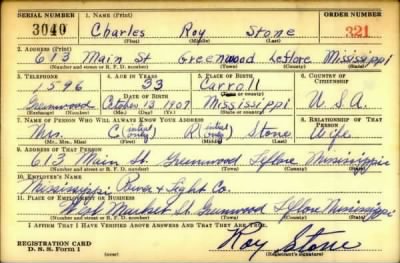 SERIAL NUMBER 1. NAME (Print) ORDER NUMBER
3040 Charles Roy Stone 321
(First) (Middle) (Last)
2. ADDRESS (Print)
613 Main St Greenwood Leflore Mississippi
(Number and street or R. F. D. number) (Town) (County) (State)
3. TELEPHONE 4. AGE IN YEARS 5. PLACE OF BIRTH 6. COUNTRY OF CITIZENSHIP
1596 33 Carroll
(Town or county)
DATE OF BIRTH
Greenwood October 13 1907 Mississippi U.S.A.
(Exchange) (Number) (Mo.) (Day) (Yr.) (State or country)
7. NAME OF PERSON WHO WILL ALWAYS KNOW YOUR ADDRESS 8. RELATIONSHIP OF THAT PERSON
Mrs. C (initial only) R (initial only) Stone Wife
(Mr., Mrs., Miss) (First) (Middle) (Last)
9. ADDRESS OF THAT PERSON
613 Main St. Greenwood Leflore Mississippi
(Number and street or R. F. D. number) (Town) (County) (State)
10. EMPLOYER'S NAME
Mississippi Power & Light Co.
11. PLACE OF EMPLOYMENT OR BUSINESS
Market St. Greenwood Leflore Mississippi
(Number and street or R. F. D. number) (Town) (County) (State)
I AFFIRM THAT I HAVE VERIFIED ABOVE ANSWERS AND THAT THEY ARE TRUE.
REGISTRATION CARD
D. S. S. Form 1
(over)
Roy Stone
(Registrant's signature)